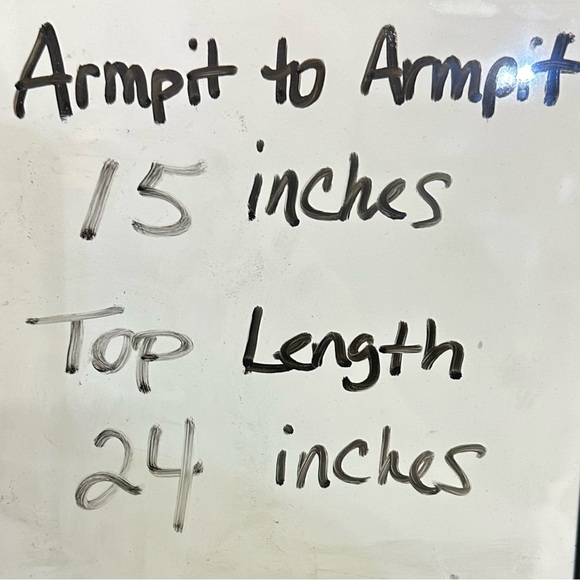 Armpit to Armpit
15 inches
Top Length
24 inches